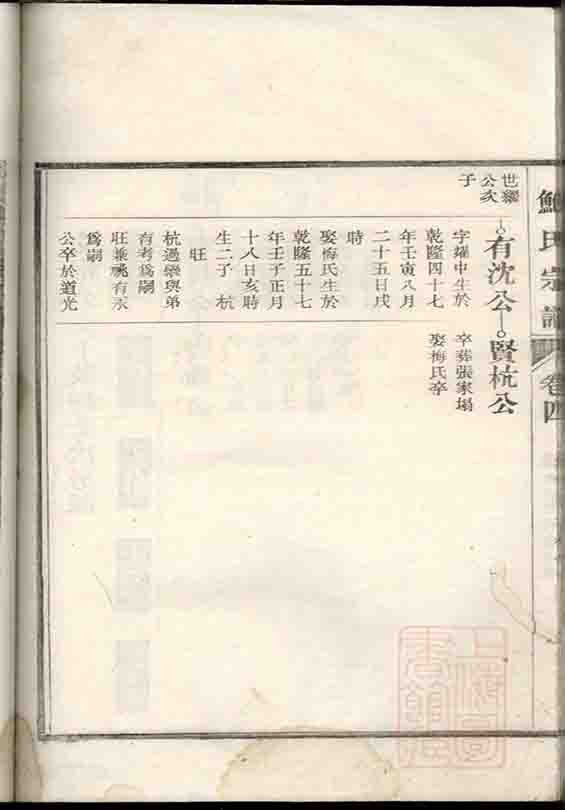 氏宗譜 卷四
世耀
公次
子
有沈公
字耀中生於
乾隆四十七
年壬寅八月
二十五日戌
時
娶梅氏生於
乾隆五十七
年壬子正月
十八日亥時
生二子 杭
旺
杭過與弟
有考爲嗣
旺兼祧有永
爲嗣
公卒於道光
賢杭公
卒葬張家塌
娶梅氏卒
上海圖
書館藏